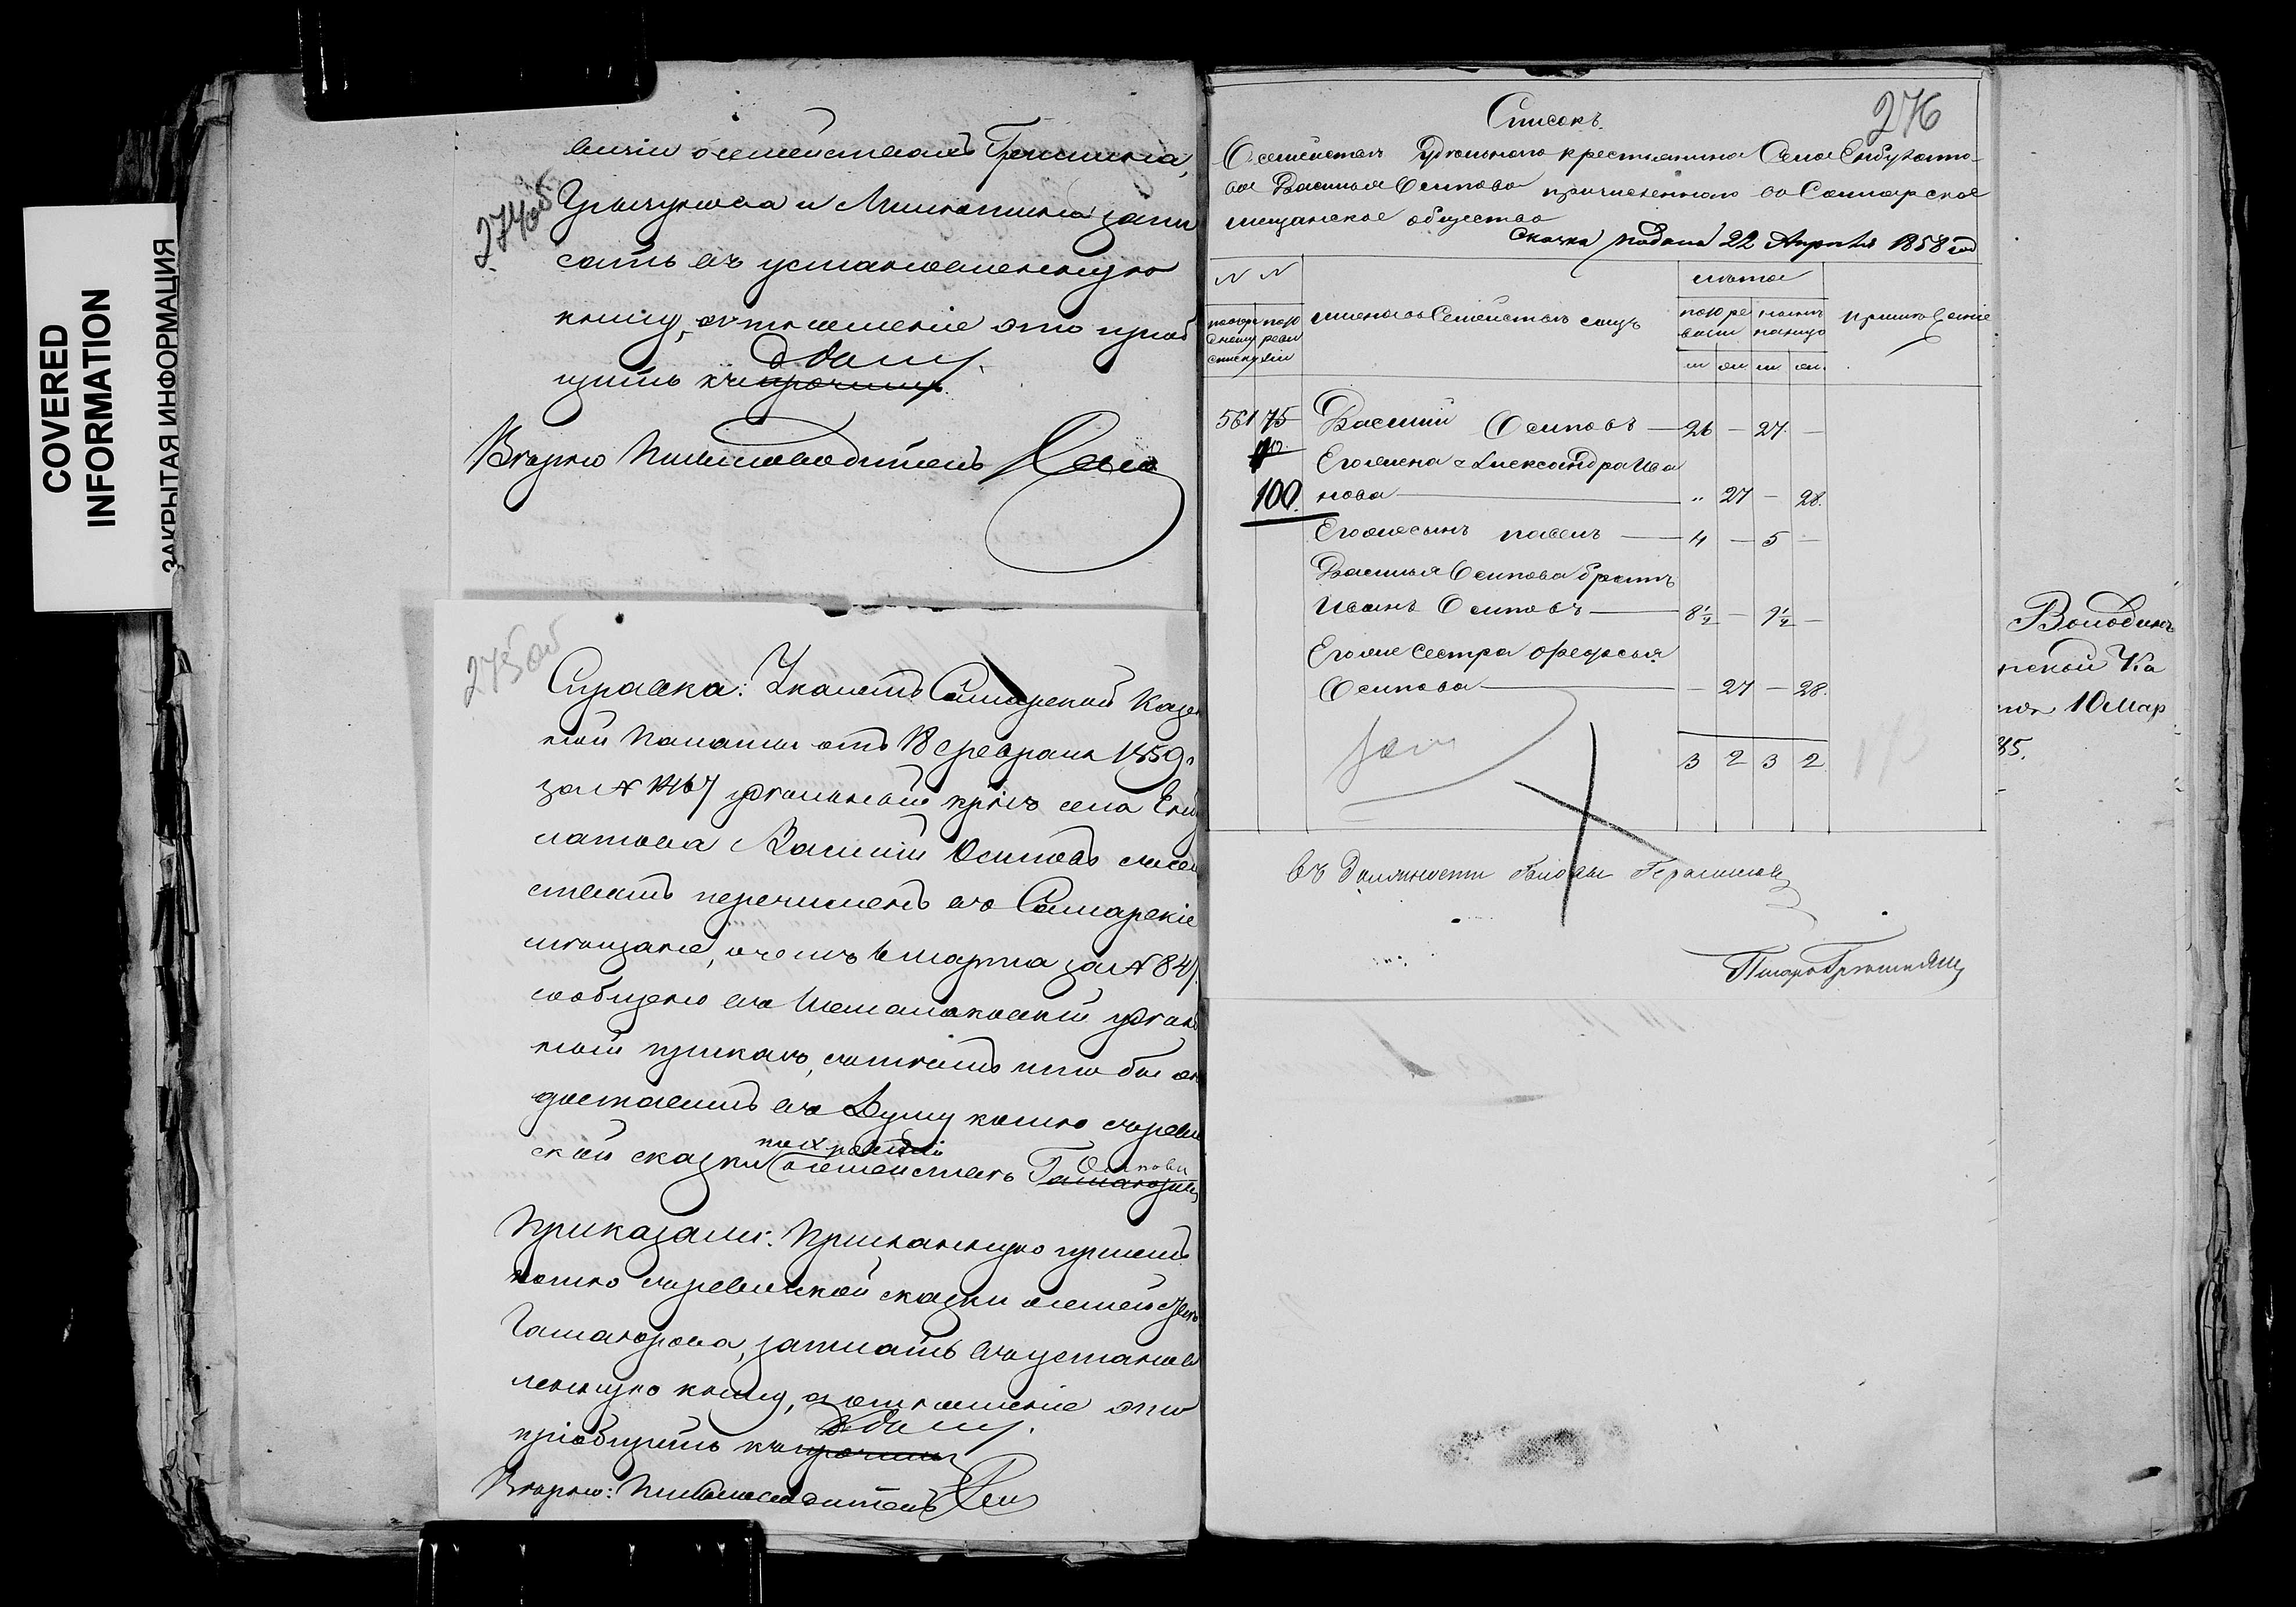 COVERED
INFORMATION
ЗАКРЫТАЯ ИНФОРМАЦИЯ
274об
семействахъ Гришина,
и запи
сать въ установленную
книгу, отношеніе это пріоб
дѣлу.
щить къ прочимъ.
Вѣрно Письмоводитель
275об
Справка: Указомъ Самарской Казен
ной Палаты отъ 18 февраля 1859 г.
за № 1467 удѣльный кр-нъ села Ени
латова Василій Осиповъ съ семей
ствомъ перечисленъ въ Самарскіе
мѣщане, о чемъ 6 марта за № 847
сообщено въ удѣль
ный приказъ, съ тѣмъ что бы онъ
доставилъ въ Думу копію съ реви
по X ревизіи
ской сказки о семействѣ Осипова
Приказали: Присланную при семъ
копію съ ревизской сказки о семействѣ
записать въ установ
ленную книгу, а отношеніе это
дѣлу.
пріобщить къ прочимъ
Вѣрно: Письмоводитель
276
Списокъ
О семействѣ Удѣльнаго крестьянина Села Енбулато-
ва Василья Осипова причисленнаго въ Самарское
мещанское общество
Сказка подана 22 Апрѣля 1858 год
№ №
лѣта
имена въ Семействѣ лицъ
по ре визіи
нынѣ на лицо
примѣчаніе
м ж м ж.
561 75 Василій Осиповъ — 26 — 27. —
Его жена Александра Ива
100. нова — „ 27 — 28.
Его же сынъ Павелъ — 4 — 5 —
Василья Осипова братъ
Иванъ Осиповъ — 8½ — 9½ —
Его же Сестра Ѳедосья
Осипова — 27 — 28.
3 2 3 2
Въ должности Головы Герасимовъ
Писарь
Володинъ
рской Ка
10 Мар
85.